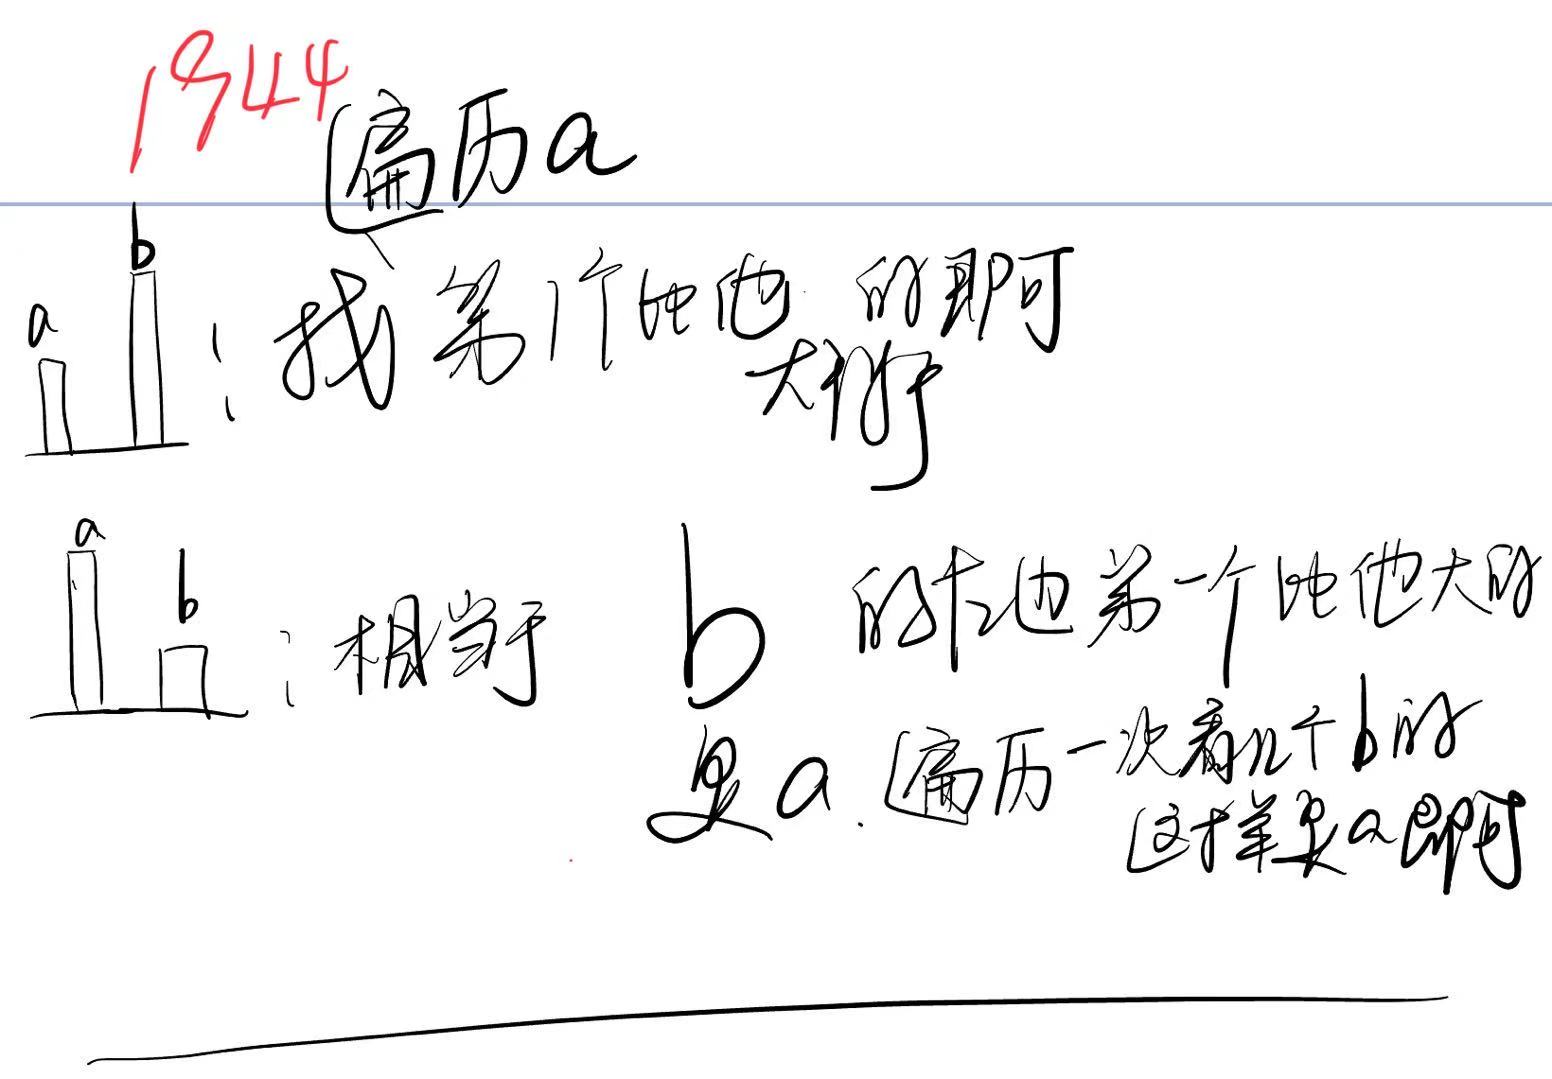 1944
遍历a
a
b
: 找第1个比他 的即可
大
a
b
: 相当于 b 的左边第一个比他大的
是a. 遍历一次看几个b的
这样是a即可